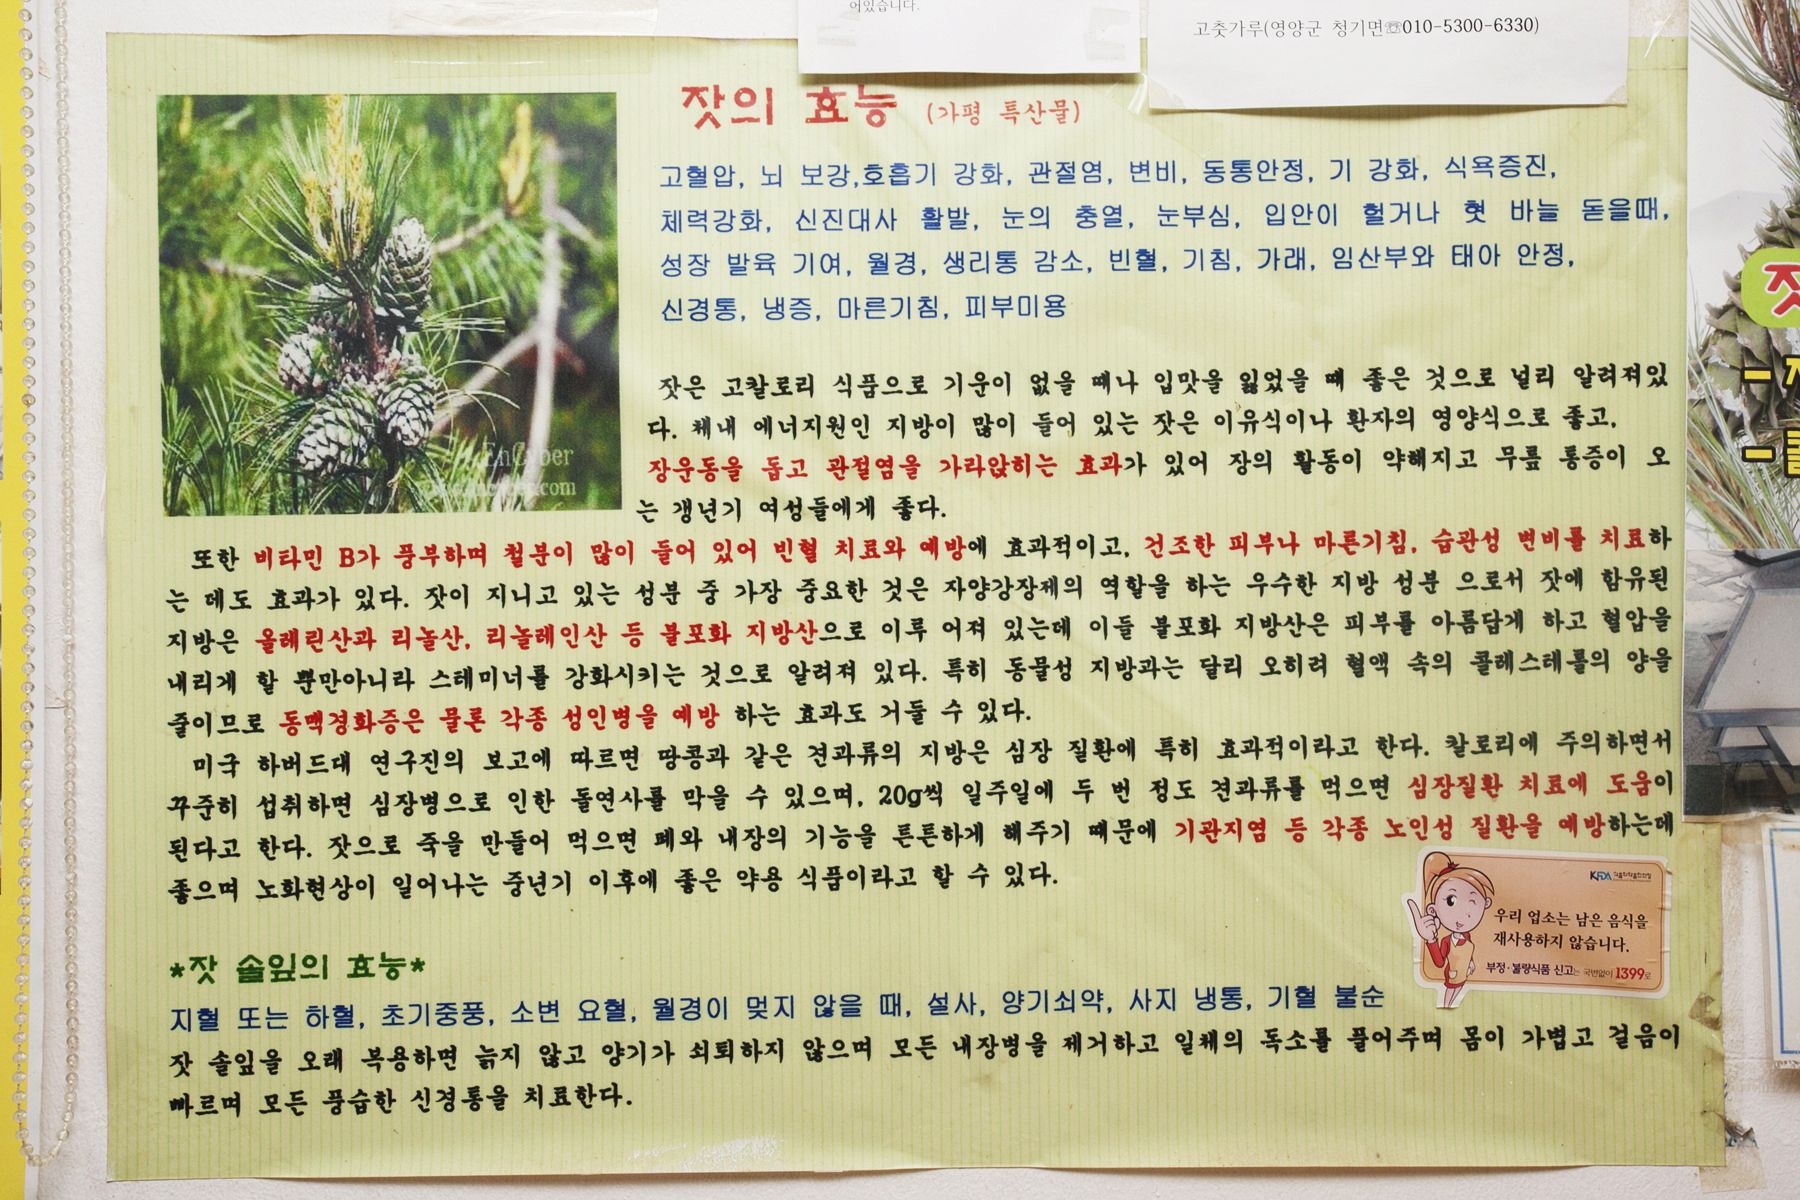 어있습니다.
고춧가루(영양군 청기면☏010-5300-6330)
잣의 효능 (가평 특산물)
고혈압, 뇌 보강,호흡기 강화, 관절염, 변비, 동통안정, 기 강화, 식욕증진,
체력강화, 신진대사 활발, 눈의 충열, 눈부심, 입안이 헐거나 혓 바늘 돋을때,
성장 발육 기여, 월경, 생리통 감소, 빈혈, 기침, 가래, 임산부와 태아 안정,
신경통, 냉증, 마른기침, 피부미용
잣은 고칼로리 식품으로 기운이 없을 때나 입맛을 잃었을 때 좋은 것으로 널리 알려져있
다. 체내 에너지원인 지방이 많이 들어 있는 잣은 이유식이나 환자의 영양식으로 좋고,
장운동을 돕고 관절염을 가라앉히는 효과가 있어 장의 활동이 약해지고 무릎 통증이 오
는 갱년기 여성들에게 좋다.
또한 비타민 B가 풍부하며 철분이 많이 들어 있어 빈혈 치료와 예방에 효과적이고, 건조한 피부나 마른기침, 습관성 변비를 치료하
는 데도 효과가 있다. 잣이 지니고 있는 성분 중 가장 중요한 것은 자양강장제의 역할을 하는 우수한 지방 성분 으로서 잣에 함유된
지방은 올레린산과 리놀산, 리놀레인산 등 불포화 지방산으로 이루 어져 있는데 이들 불포화 지방산은 피부를 아름답게 하고 혈압을
내리게 할 뿐만아니라 스테미너를 강화시키는 것으로 알려져 있다. 특히 동물성 지방과는 달리 오히려 혈액 속의 콜레스테롤의 양을
줄이므로 동맥경화증은 물론 각종 성인병을 예방 하는 효과도 거둘 수 있다.
미국 하버드대 연구진의 보고에 따르면 땅콩과 같은 견과류의 지방은 심장 질환에 특히 효과적이라고 한다. 칼로리에 주의하면서
꾸준히 섭취하면 심장병으로 인한 돌연사를 막을 수 있으며, 20g씩 일주일에 두 번 정도 견과류를 먹으면 심장질환 치료에 도움이
된다고 한다. 잣으로 죽을 만들어 먹으면 폐와 내장의 기능을 튼튼하게 해주기 때문에 기관지염 등 각종 노인성 질환을 예방하는데
좋으며 노화현상이 일어나는 중년기 이후에 좋은 약용 식품이라고 할 수 있다.
KFDA 식품의약품안전청
우리 업소는 남은 음식을
재사용하지 않습니다.
부정·불량식품 신고는 국번없이 1399로
*잣 솔잎의 효능*
지혈 또는 하혈, 초기중풍, 소변 요혈, 월경이 멎지 않을 때, 설사, 양기쇠약, 사지 냉통, 기혈 불순
잣 솔잎을 오래 복용하면 늙지 않고 양기가 쇠퇴하지 않으며 모든 내장병을 제거하고 일체의 독소를 풀어주며 몸이 가볍고 걸음이
빠르며 모든 풍습한 신경통을 치료한다.